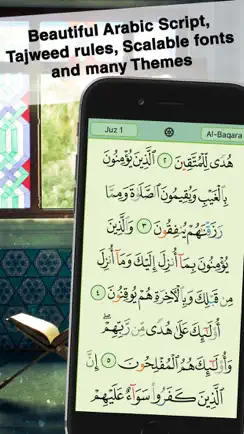 Beautiful Arabic Script,
Tajweed rules, Scalable fonts
and many Themes
Juz 1
Al-Baqara
هُدًى لِّلْمُتَّقِينَ ٢ الَّذِينَ يُؤْمِنُونَ
بِالْغَيْبِ وَيُقِيمُونَ الصَّلَاةَ وَمِمَّا
رَزَقْنَٰهُمْ يُنفِقُونَ ٣ وَالَّذِينَ
يُؤْمِنُونَ بِمَآ أُنزِلَ إِلَيْكَ وَمَآ أُنزِلَ
مِن قَبْلِكَ وَبِالْأَخِرَةِ هُمْ يُوقِنُونَ ٤
أُو۟لَٰٓئِكَ عَلَىٰ هُدًى مِّن رَّبِّهِمْ ۖ
وَأُو۟لَٰٓئِكَ هُمُ الْمُفْلِحُونَ ٥ إِنَّ
الَّذِينَ كَفَرُوا۟ سَوَآءٌ عَلَيْهِمْ